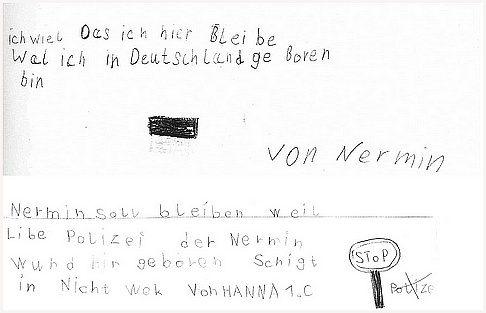 ich wiel Das ich hier Bleibe
Wal ich in Deutschland ge Boren
bin
von Nermin
Nermin soll bleiben weil
Libe Polizei der Nermin
wurd hir geboren Schigt
in Nicht wek Von HANNA 1.C
STOP
Polize